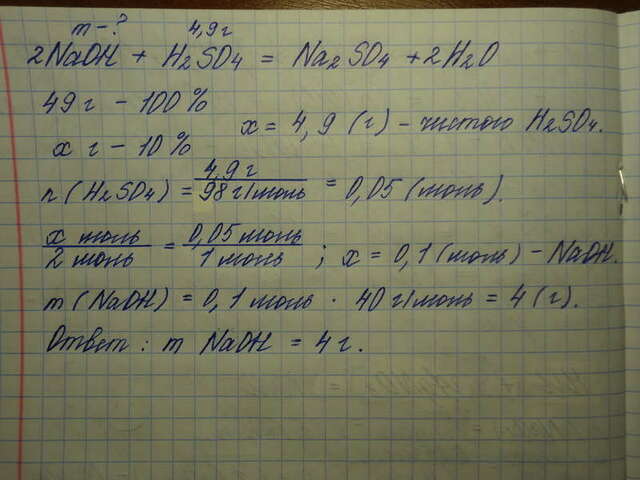 m - ? 4,9 г
2NaOH + H2SO4 = Na2SO4 + 2H2O
49 г - 100 %
x г - 10 %
x = 4,9 (г) - чистого H2SO4.
n(H2SO4) = 4,9 г / 98 г/моль = 0,05 (моль).
x моль / 2 моль = 0,05 моль / 1 моль ; x = 0,1 (моль) - NaOH.
m (NaOH) = 0,1 моль · 40 г/моль = 4 (г).
Ответ : m NaOH = 4 г.